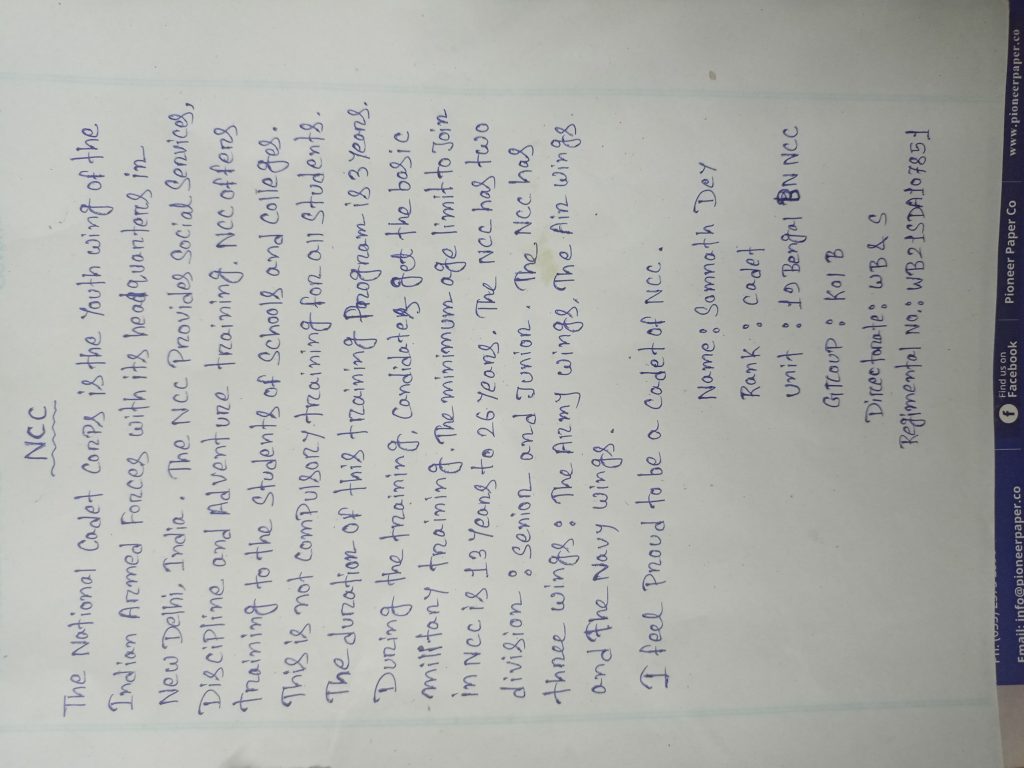 NCC
The National Cadet Corps is the Youth wing of the
Indian Armed Forces with its headquarters in
New Delhi, India. The NCC Provides Social Services,
Discipline and Adventure training. NCC offers
training to the Students of Schools and Colleges.
This is not compulsory training for all Students.
The duration of this training Program is 3 years.
During the training, Candidates get the basic
military training. The minimum age limit to Join
in NCC is 13 years to 26 years. The NCC has two
division : Senior and Junior. The NCC has
three wings : The Army wings, The Air wings
and The Navy wings.
I feel Proud to be a cadet of NCC.
Name : Somnath Dey
Rank : cadet
Unit : 10 Bengal BN NCC
Group : Kol B
Directorate : WB & S
Regimental No.: WB21SDA107851
Email: info@pioneerpaper.co
Find us on
Facebook
Pioneer Paper Co
www.pioneerpaper.co